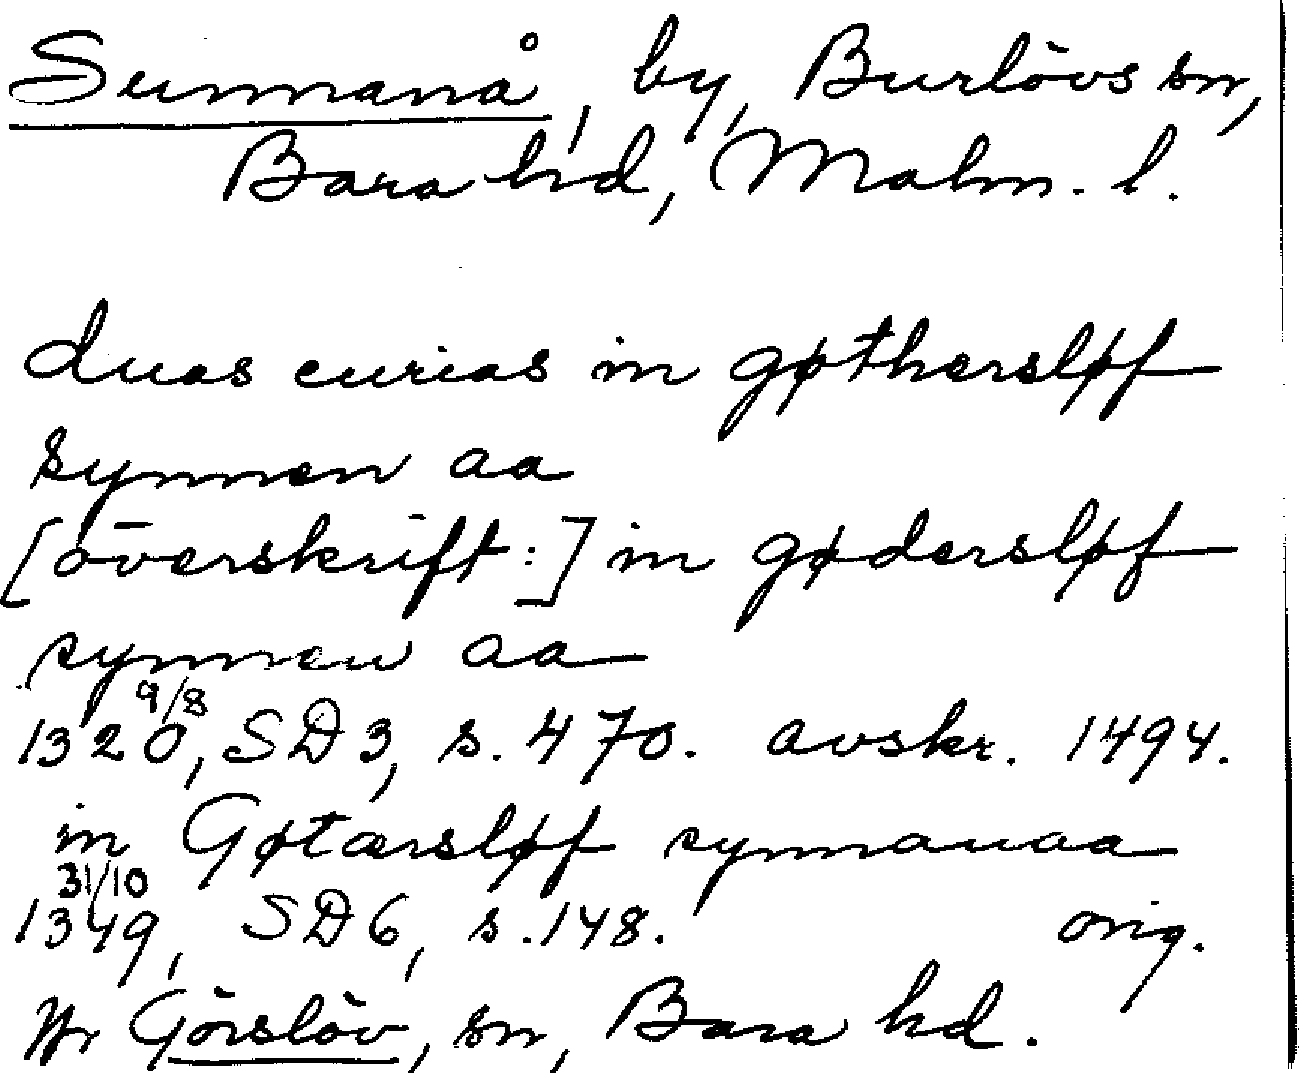 Sunnanå, by, Burlövs sn,
Bara hd, Malm. l.
duas curias in gøthersløf
synnen aa
[överskrift:] in gødersløf
synnen aa
1320 9/8, SD 3, s. 470. avskr. 1494.
in Gøtærsløf synnanaa
1349 31/10, SD 6, s. 148. orig.
Jfr Görslöv, sn, Bara hd.